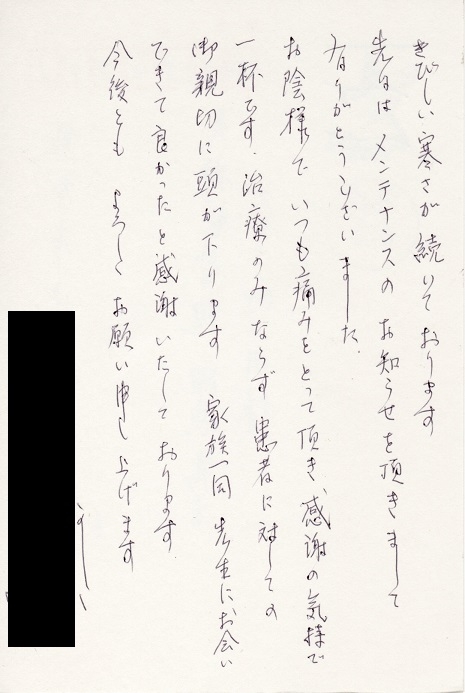 きびしい寒さが続いております
先日はメンテナンスのお知らせを頂きまして
有りがとうございました.
お陰様で いつも痛みをとって頂き、感謝の気持で
一杯です. 治療のみならず 患者に対しての
御親切に頭が下ります 家族一同 先生にお会い
できて良かったと感謝いたして おります
今後とも よろしく お願い申し上げます